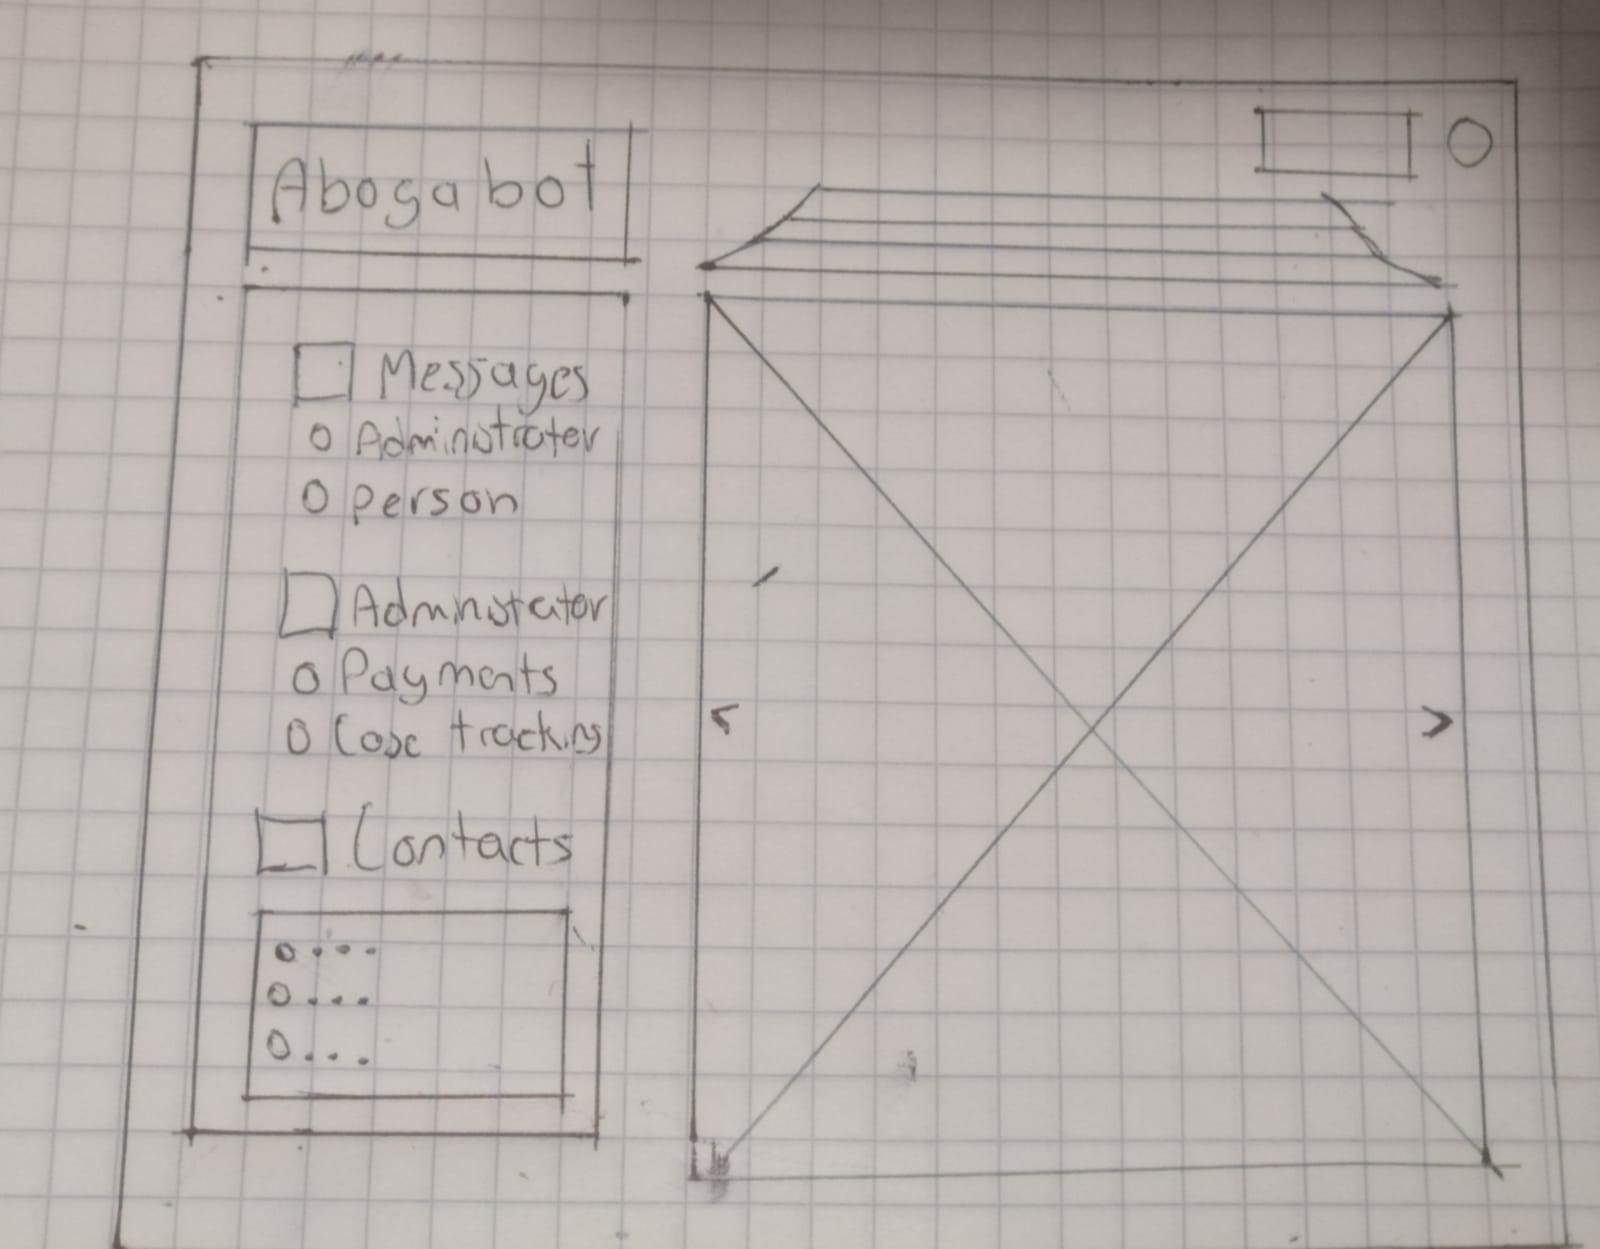 Abogabot
Messages
Administrater
person
Adminstrator
Payments
Case tracking
Contacts